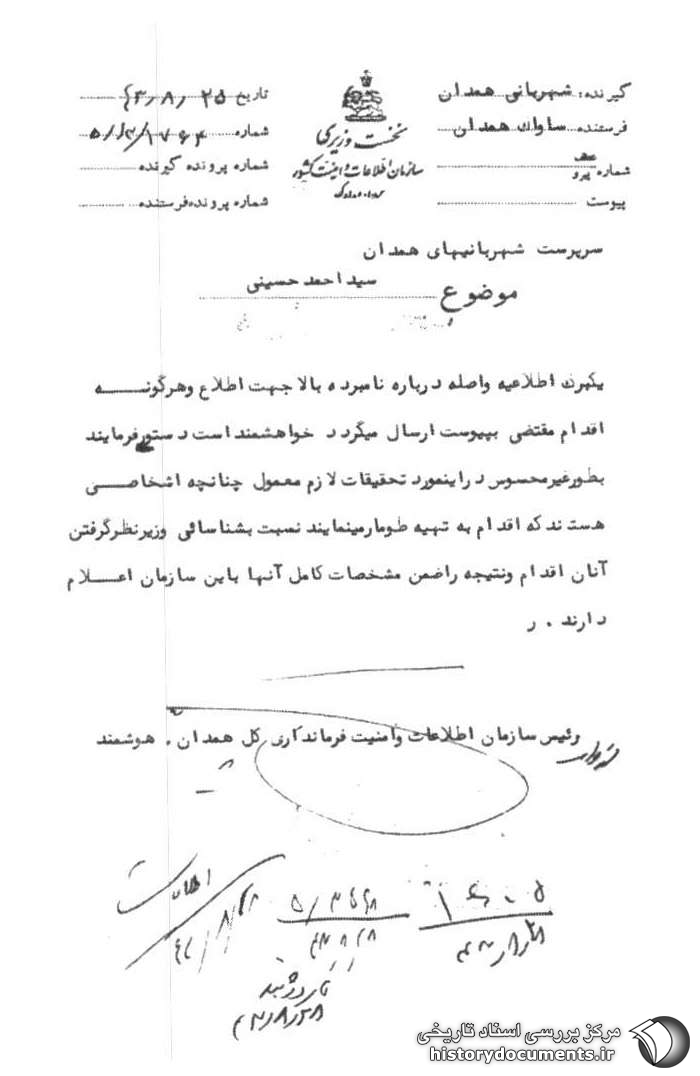 گیرنده: شهربانی همدان
فرستنده ساواک همدان
شماره پیرو
پیوست
نخست وزیری
سازمان اطلاعات و امنیت کشور
س.ا.و.ا.ک
تاریخ ۴۳/۸/۲۵
شماره ۵/ﻫ/۱۷۶۴
شماره پرونده گیرنده
شماره پرونده فرستنده
سرپرست شهربانیهای همدان
موضوع سید احمد حسینی
یکبرگ اطلاعیه واصله درباره نامبرده بالا جهت اطلاع وهرگونه
اقدام مقتضی بپیوست ارسال میگردد خواهشمند است دستور فرمایند
بطور غیرمحسوس دراینمورد تحقیقات لازم معمول چنانچه اشخاصی
هستند که اقدام به تهیه طومار مینمایند نسبت بشناسائی وزیرنظر گرفتن
آنان اقدام ونتیجه راضمن مشخصات کامل آنها باین سازمان اعلام
دارند . ر
رئیس سازمان اطلاعات وامنیت فرمانداری کل همدان . هوشمند
اطلاعات
۴۳/۸/۲۸
مرکز بررسی اسناد تاریخی
historydocuments.ir